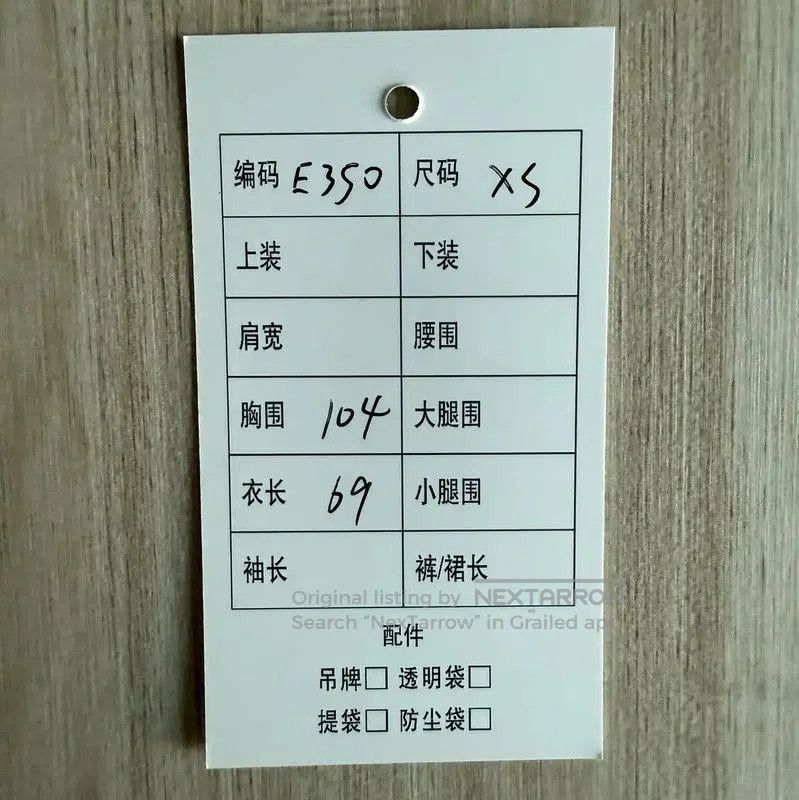 编码 E350 尺码 XS
上装 下装
肩宽 腰围
胸围 104 大腿围
衣长 69 小腿围
袖长 裤/裙长
Original listing by NEXTARROW
Search “NexTarrow” in Grailed ap
配件
吊牌□ 透明袋□
提袋□ 防尘袋□